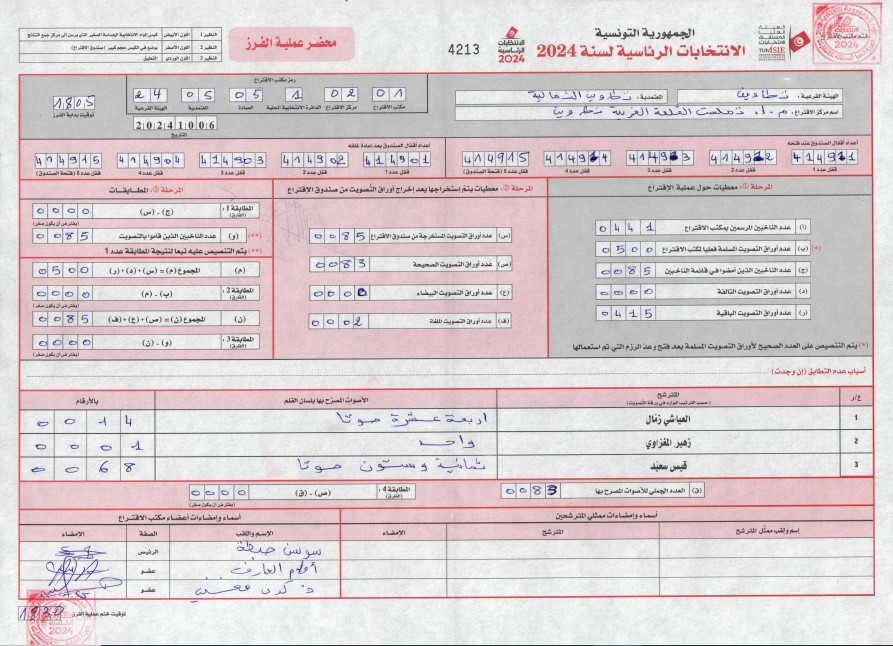 الجمهورية التونسية
الانتخابات الرئاسية لسنة 2024
الانتخابات الرئاسية 2024
4213
محضر عملية الفرز
النظير 1 اللون الأبيض
النظير 2 اللون الأصفر
النظير 3 اللون الوردي التعليق
الهيئة الفرعية: تطاوين المعتمدية: تطاوين الشمالية
اسم مركز الاقتراع
رمز مكتب الاقتراع
01 02 1 05 05 24
مكتب الاقتراع مركز الاقتراع الدائرة الانتخابية المحلية العمادة المعتمدية الهيئة الفرعية
1805
توقيت بداية الفرز
20241006
التاريخ
أعداد أقفال الصندوق عند فتحه
414915
قفل عدد 1 قفل عدد 2 قفل عدد 3 قفل عدد 4 قفل عدد 5 (فتحة الصندوق)
أعداد أقفال الصندوق بعد إعادة غلقه
414901 414902 414903 414904 414915
قفل عدد 1 قفل عدد 2 قفل عدد 3 قفل عدد 4 قفل عدد 5 (فتحة الصندوق)
المرحلة ①: معطيات حول عملية الإقتراع
(أ) عدد الناخبين المرسمين بمكتب الاقتراع 0441
(*) (ب) عدد أوراق التصويت المسلمة فعليا لمكتب الاقتراع 0500
(ج) عدد الناخبين الذين أمضوا في قائمة الناخبين 0085
(د) عدد أوراق التصويت التالفة 0000
(ر) عدد أوراق التصويت الباقية 0415
(*) يتم التنصيص على العدد الصحيح لأوراق التصويت المسلمة بعد فتح وعد الرزم التي تم استعمالها
المرحلة ②: معطيات يتم إستخراجها بعد إخراج أوراق التصويت من صندوق الاقتراع
(س) عدد أوراق التصويت المستخرجة من صندوق الاقتراع 0085
(ص) عدد أوراق التصويت الصحيحة 0083
(ع) عدد أوراق التصويت البيضاء 0000
(ف) عدد أوراق التصويت الملغاة 0002
المرحلة ③: المطابقات
المطابقة 1: (الفارق) (ج) - (س) 0000
(يفترض أن يكون صفر)
(**) (و) عدد الناخبين الذين قاموا بالتصويت 0085
(**) يتم التنصيص عليه تبعا لنتيجة المطابقة عدد 1
(م) المجموع (م) = (س) + (د) + (ر) 0500
المطابقة 2: (الفارق) (ب) - (م) 0000
(يفترض أن يكون صفر)
(ن) المجموع (ن) = (ص) + (ع) + (ف) 0085
المطابقة 3: (الفارق) (و) - (ن) 0000
(يفترض أن يكون صفر)
أسباب عدم التطابق (إن وجدت)
ع/ر المترشح الأصوات المصرح بها بلسان القلم بالأرقام
(حسب الترتيب الوارد في ورقة التصويت)
1 العياشي زمال اربعة عشرة صوتا 0014
2 زهير المغزاوي واحد 0001
3 قيس سعيد ثمانية وستون صوتا 0068
(ق) العدد الجملي للأصوات المصرح بها 0083
المطابقة 4: (الفارق) (ص) - (ق) 0000
(يفترض أن يكون صفر)
أسماء وإمضاءات ممثلي المترشحين
إسم ولقب ممثل المترشح المترشح الإمضاء
أسماء وإمضاءات أعضاء مكتب الاقتراع
الإسم واللقب الصفة الإمضاء
الرئيس
عضو
عضو
توقيت ختم عملية الفرز 1830